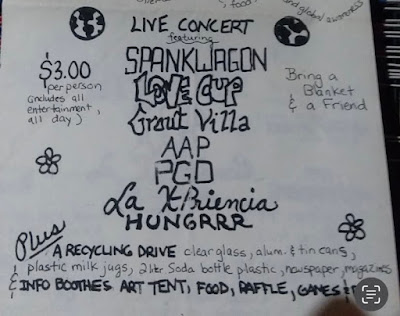 & food,
and global awareness
LIVE CONCERT
featuring
SPANKWAGON
LOVE CUP
Grout Villa
AAP
PGD
La XPriencia
HUNGRRR
$3.00
per person
(includes all
entertainment,
all day)
Bring a
Blanket
& a Friend
Plus
A RECYCLING DRIVE clear glass, alum. & tin cans,
plastic milk jugs, 2 liter Soda bottle plastic, newspaper, magazines
& INFO BOOTHES ART TENT, FOOD, RAFFLE, GAMES &